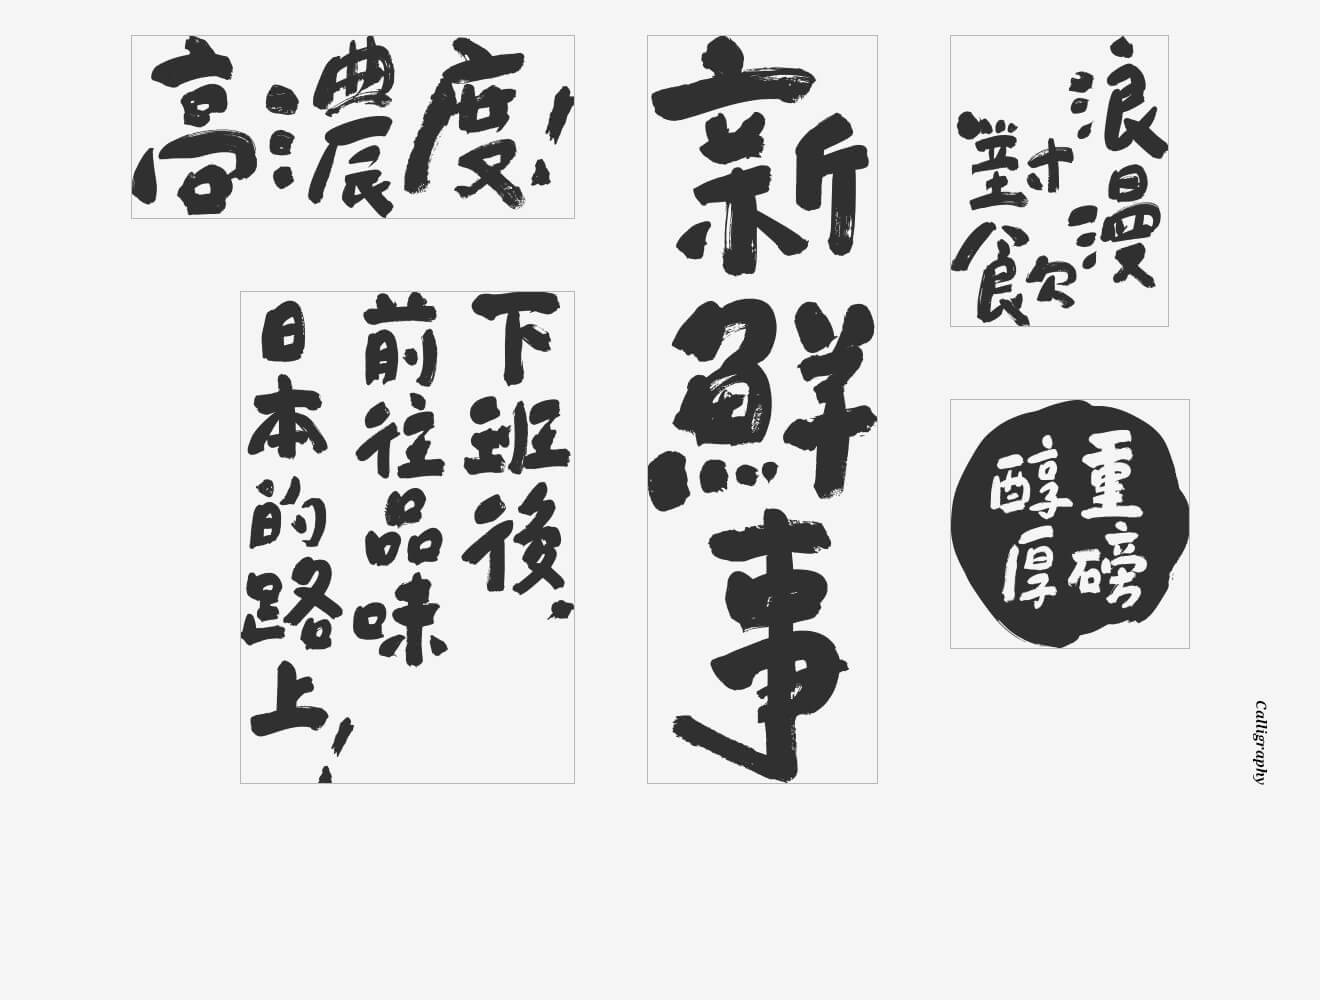 高濃度!
下班後,
前往品味
日本的路上!
新鮮事
浪漫
對飲
重磅
醇厚
Calligraphy